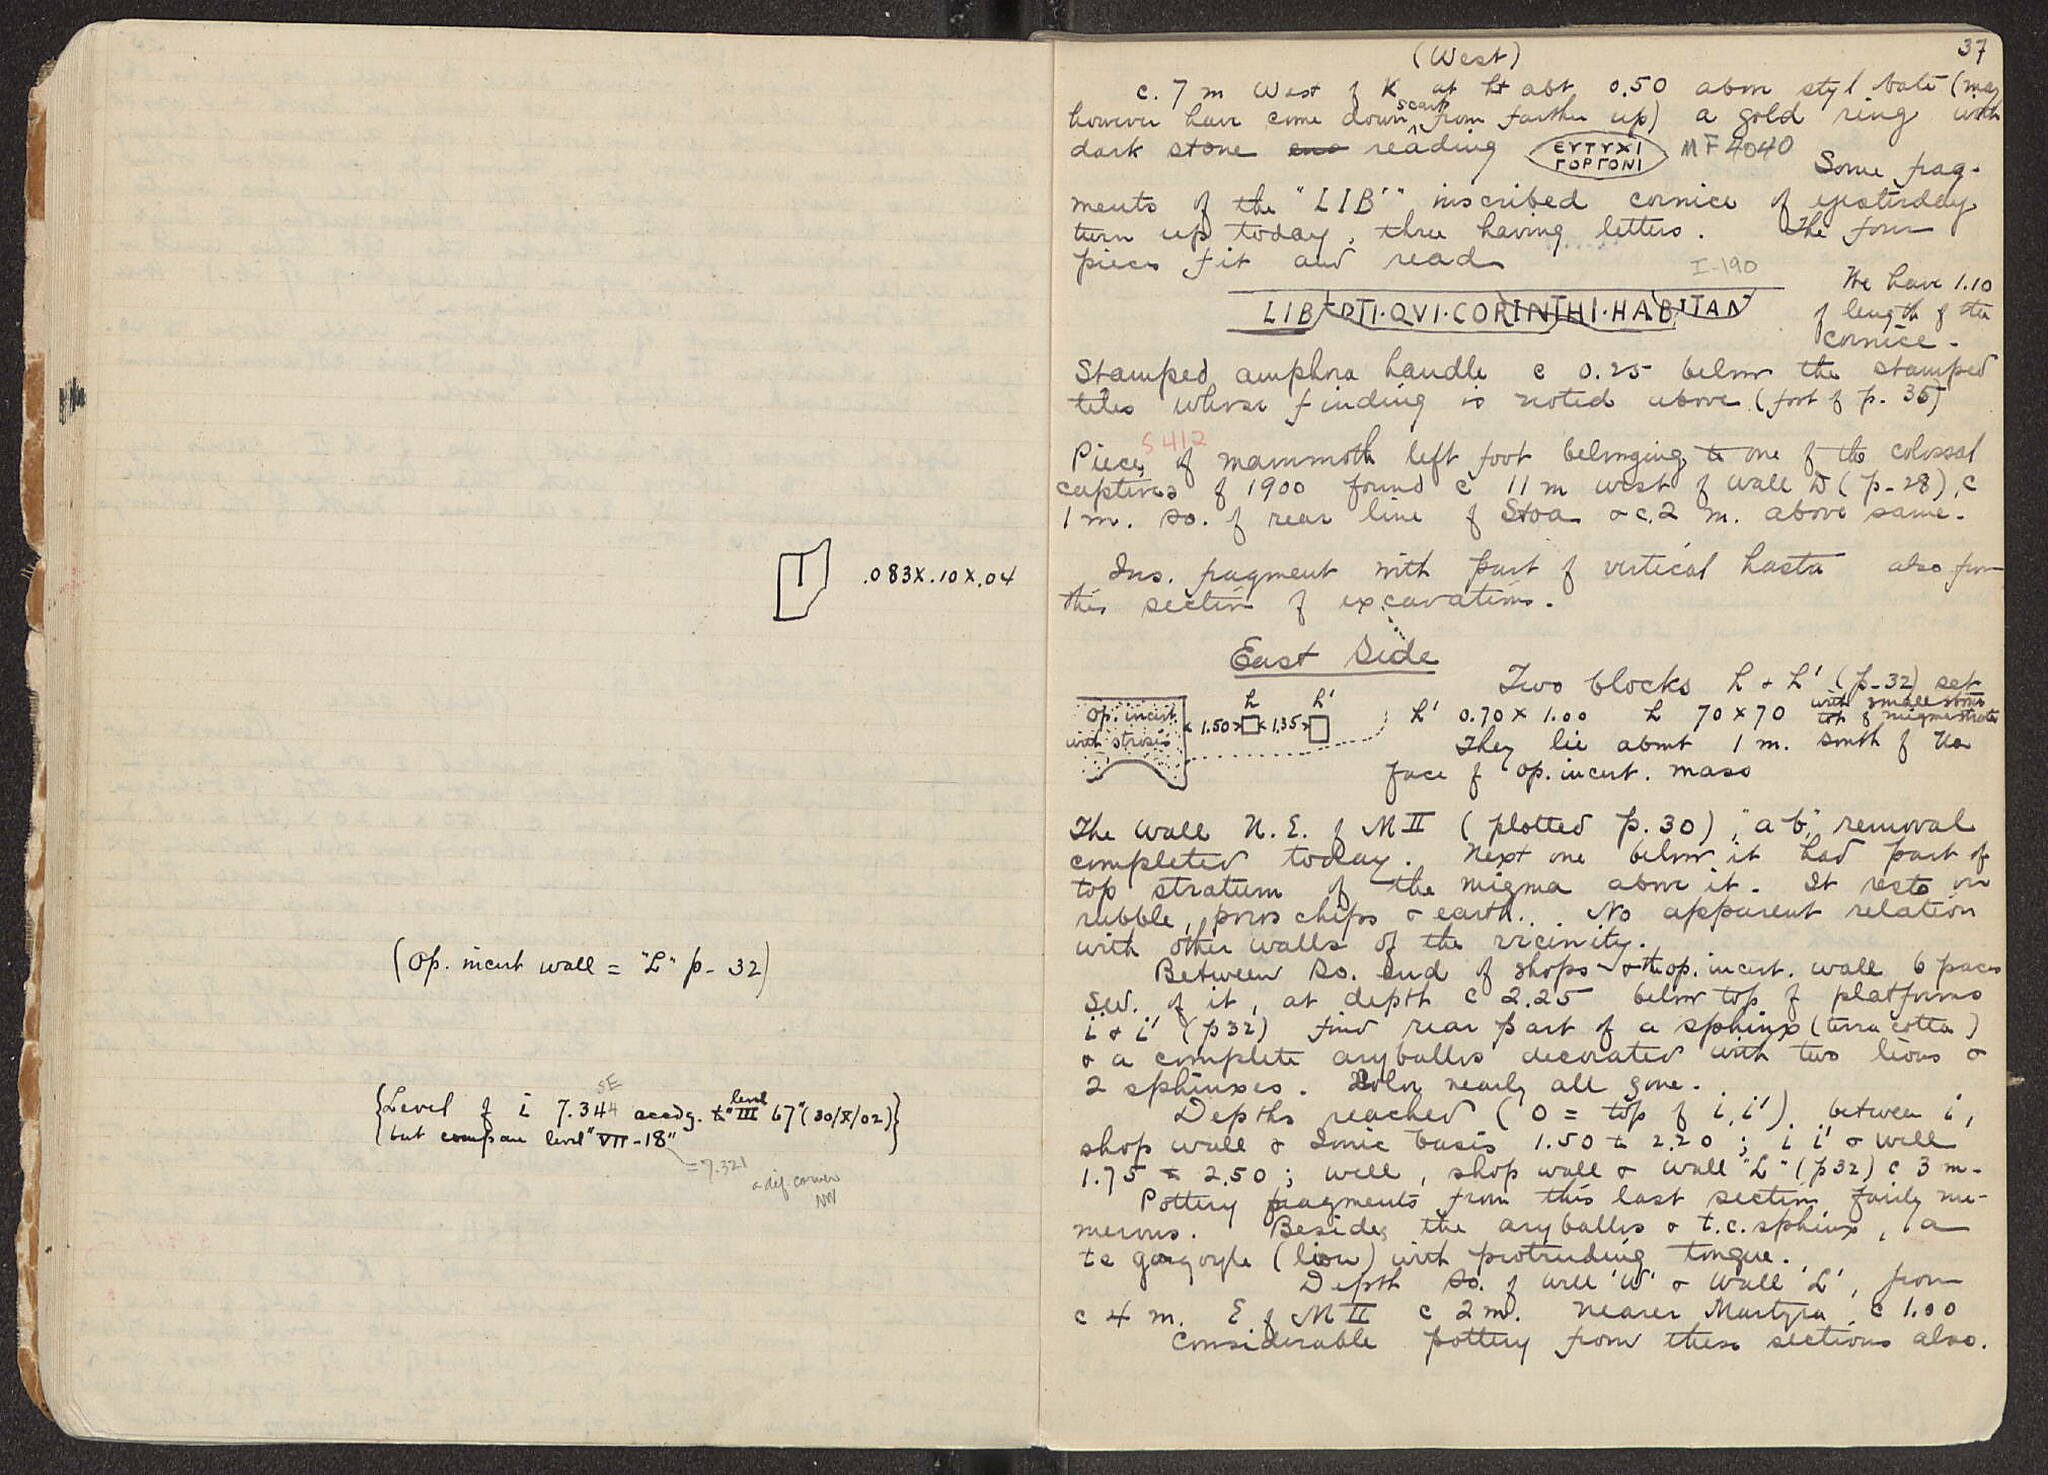 .083x.10x.04
(Op. incert wall = "L" p- 32)
SE
{Level of i 7.344 accdg. to level "III 67" (30/X/02)}
but compare level "VII-18"
= 7.321
& dif. corner
NW
37
(West)
c. 7 m West of K at ht abt 0.50 above stylobate (may
however have come down scarp from farther up) a gold ring with
dark stone reading ΕΥΤΥΧΙ ΓΟΡΓΟΝΙ MF 4040
Some frag-
ments of the "LIB'" inscribed cornice of yesterday
turn up today, three having letters. The four
pieces fit and read
I-190
LIBERTI·QVI·CORINTHI·HABITAN
We have 1.10
of length of the
cornice.
Stamped amphora handle c 0.25 below the stamped
tiles whose finding is noted above (foot of p. 35)
S 412
Pieces of mammoth left foot belonging to one of the colossal
captives of 1900 found c 11 m west of wall D (p-28), c
1 m. so. of rear line of Stoa & c. 2 m. above same.
Ins. fragment with part of vertical hasta also from
this section of excavations.
East Side
Two blocks h & h' (p-32) set
with small stones
h' 0.70 x 1.00 h 70 x 70
They lie about 1 m. south of No
face of op. incert. mass
op. incert.
with strosis
x 1.50 x h x 1.35 x h'
The wall N.E. of M II (plotted p. 30), "a b," removal
completed today. Next one below it had part of
top stratum of the migma above it. It rests on
rubble, poros chips & earth. No apparent relation
with other walls of the vicinity.
Between So. end of shops & the op. incert. wall 6 paces
S.W. of it, at depth c 2.25 below top of platforms
i & i' (p32) find rear part of a sphinx (terra cotta)
& a complete aryballos decorated with two lions &
2 sphinxes. Color nearly all gone.
Depths reached (0 = top of i, i') between i,
shop wall & Ionic basis 1.50 to 2.20; i i' & well
1.75 to 2.50; well, shop wall & wall "L" (p32) c 3 m.
Pottery fragments from this last section fairly nu-
merous. Besides the aryballos & t.c. sphinx, a
tc gorgoyle (lion) with protruding tongue.
Depth so. of well 'W' & wall 'L', from
c 4 m. E of M II c 2 m. nearer Martyra c 1.00
Considerable pottery from these sections also.